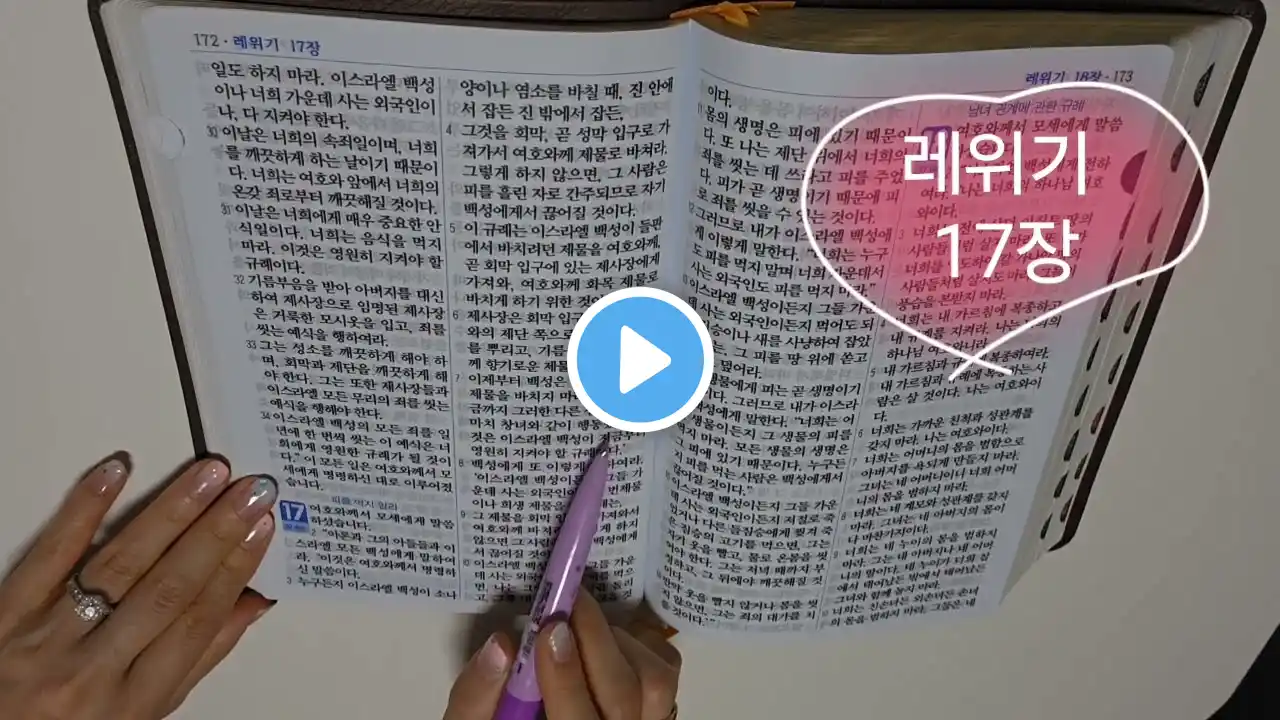 172 · 레위기 17장
일도 하지 마라. 이스라엘 백성
이나 너희 가운데 사는 외국인이
나, 다 지켜야 한다.
30 이날은 너희의 속죄일이며, 너희
를 깨끗하게 하는 날이기 때문이
다. 너희는 여호와 앞에서 너희의
온갖 죄로부터 깨끗해질 것이다.
31 이날은 너희에게 매우 중요한 안
식일이다. 너희는 음식을 먹지
마라. 이것은 영원히 지켜야 할
규례이다.
32 기름부음을 받아 아버지를 대신
하여 제사장으로 임명된 제사장
은 거룩한 모시옷을 입고, 죄를
씻는 예식을 행하여라.
33 그는 성소를 깨끗하게 해야 하
며, 회막과 제단을 깨끗하게 해
야 한다. 그는 또한 제사장들과
이스라엘 모든 무리의 죄를 씻는
예식을 행해야 한다.
34 이스라엘 백성의 모든 죄를 일
년에 한 번씩 씻는 이 예식은 너
희에게 영원한 규례가 될 것이
다.” 이 모든 일은 여호와께서 모
세에게 명령하신 대로 이루어졌
습니다.
피를 먹지 말라
17 여호와께서 모세에게 말씀
하셨습니다.
2 “아론과 그의 아들들과 이
스라엘 모든 백성에게 말하여
라. ‘이것은 여호와께서 명령하
신 말씀이다.
3 누구든지 이스라엘 백성이 소나
양이나 염소를 바칠 때, 진 안에
서 잡든 진 밖에서 잡든,
4 그것을 회막, 곧 성막 입구로 가
져가서 여호와께 제물로 바쳐라.
그렇게 하지 않으면, 그 사람은
피를 흘린 자로 간주되므로 자기
백성에게서 끊어질 것이다.
5 이 규례는 이스라엘 백성이 들판
에서 바치려던 제물을 여호와께,
곧 회막 입구에 있는 제사장에게
가져와, 여호와께 화목 제물로
바치게 하기 위한 것이
6 제사장은 회막 입구
와의 제단 쪽으로
를 뿌리고, 기름
께 향기로운 제물
7 이제부터 백성은
제물을 바치지 마
금까지 그러한 다른
마치 창녀와 같이 행동
것은 이스라엘 백성이
영원히 지켜야 할 규례
8 백성에게 또 이렇게 하여라.
‘이스라엘 백성이든 그들 가
운데 사는 외국인이 번제물
이나 희생 제물을
9 그 제물을 회막 입 가져와서
여호와께 바치 게 하지
않으면 그 사람
서 끊어질 것이
10 이스라엘 백성이 들 가운
데 사는 외국인 를 먹으
면, 나는 그 를 돌리
이다.
11 몸의 생명은 피에 있기 때문이
다. 또 나는 제단 위에서 너희의
죄를 씻는 데 쓰라고 피를 주었
다. 피가 곧 생명이기 때문에 피
로 죄를 씻을 수 있는 것이다.
12 그러므로 내가 이스라엘 백성에
게 이렇게 말한다. “너희는 누구
도 피를 먹지 말며 너희 가운데서
사는 외국인도 피를 먹지 마라.”
이스라엘 백성이든지 그들 가운
사는 외국인이든지 먹어도 되
승이나 새를 사냥하여 잡았
는, 그 피를 땅 위에 쏟고
덮어라.
물에게 피는 곧 생명이기
다. 그러므로 내가 이스라
성에게 말한다. “너희는 어
물이든지 그 생물의 피를
지 마라. 모든 생물의 생명은
피에 있기 때문이다. 누구든
지 피를 먹는 사람은 백성에게서
끊어질 것이다.”
이스라엘 백성이든지 그들 가운
데 사는 외국인이든지 저절로 죽
었거나 다른 들짐승에게 찢겨 죽
은 짐승의 고기를 먹으면, 그는
자기 옷을 빨고, 물로 온몸을 씻
어야 한다. 그는 저녁 때까지 부
정하고, 그 뒤에야 깨끗해질 것
이다.
만약 옷을 빨지 않거나 몸을 씻
지 않으면, 그는 죄의 대가를 치
레위기 18장 · 173
남녀 관계에 관한 규례
여호와께서 모세에게 말씀
레위기
17장
풍습을 본받지 마라.
4 너희는 내 가르침에 복종하고
내 규례를 지켜라. 나는 너희의
하나님 여호와니라.
5 내 가르침과 규례에 복종하여라.
내 가르침과 규례에 복종하는 사
람은 살 것이다. 나는 여호와이
다.
6 너희는 가까운 친척과 성관계를
갖지 마라. 나는 여호와이다.
7 너희는 어머니의 몸을 범함으로
아버지를 욕되게 만들지 마라.
그녀는 네 어머니이니 너희 어머
니의 몸을 범하지 마라.
8 너희는 네 계모와 성관계를 갖지
마라. 그녀는 네 아버지의 몸이
나 마찬가지이다.
9 너희는 네 누이의 몸을 범하지
마라. 그는 네 아버지나 네 어머
니의 딸이다. 네 누이가 너희 집
에서 태어났든 밖에서 태어났든
그녀와 함께 눕지 마라.
10 너희는 친손녀든 외손녀든 손녀
의 몸을 범하지 마라. 그들은 네